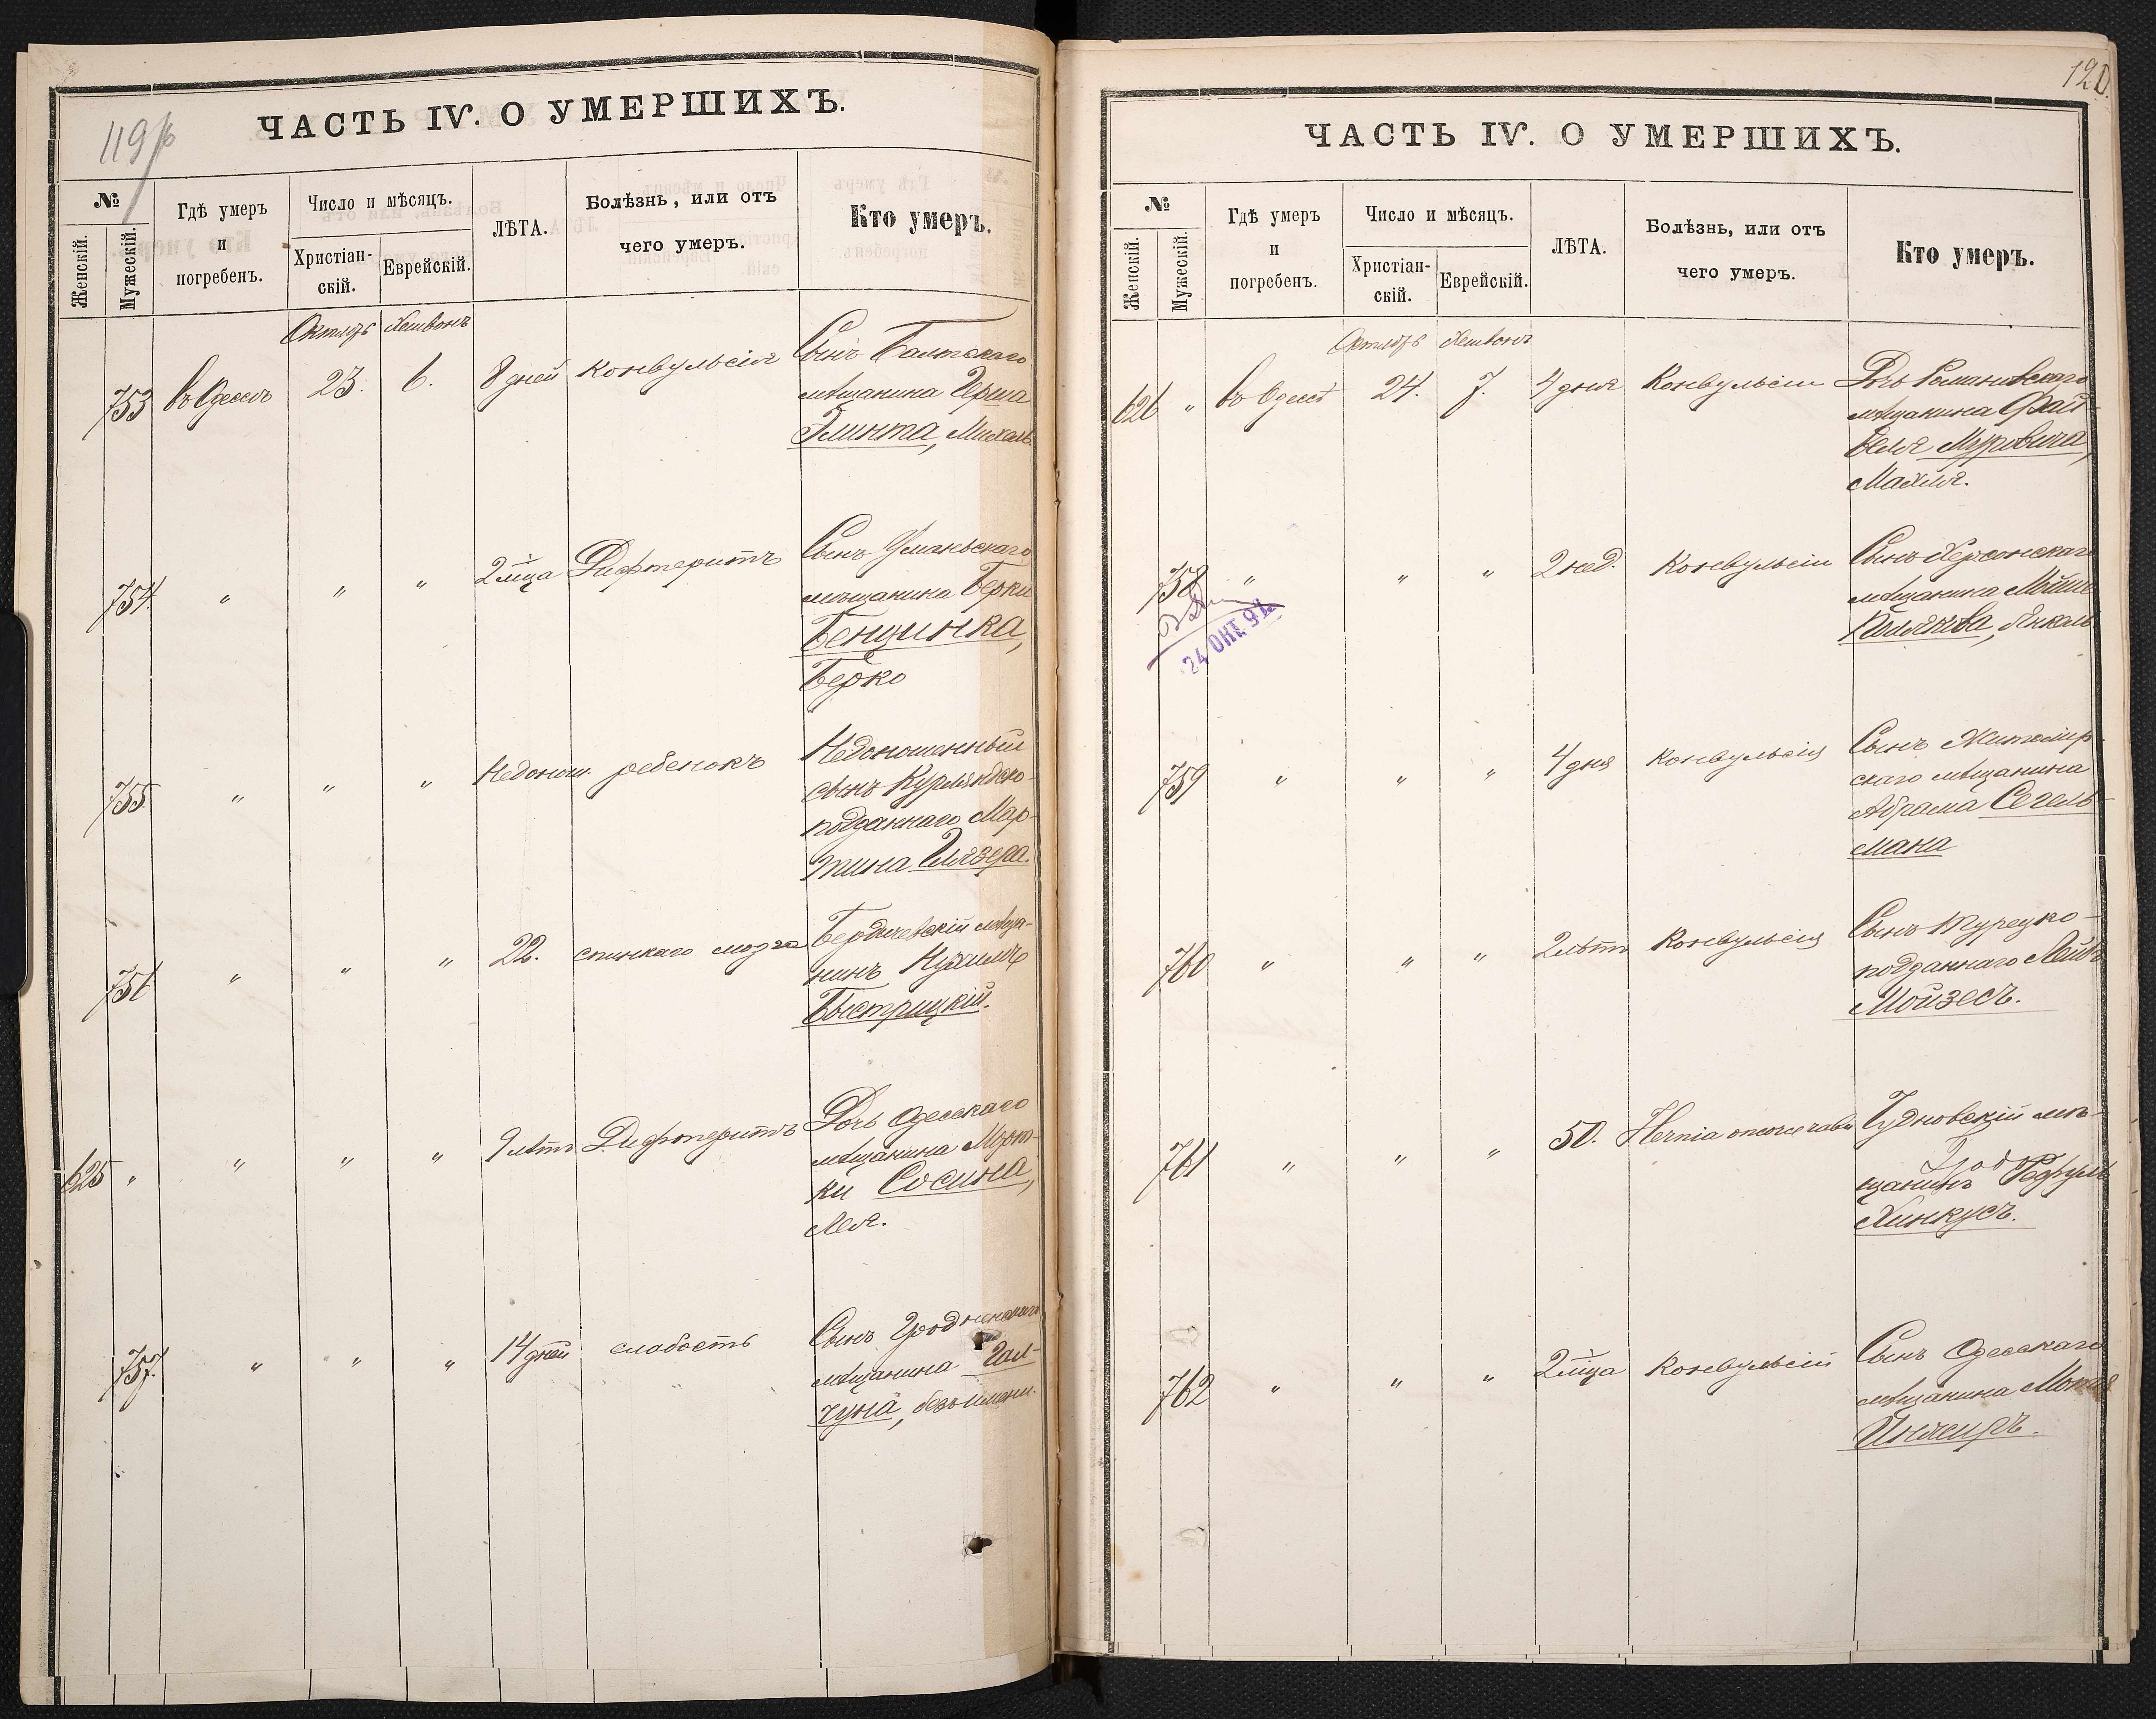 119
ЧАСТЬ IV. О УМЕРШИХЪ.
№
Женскій.
Мужескій.
Гдѣ умеръ
и
погребенъ.
Число и мѣсяцъ.
Христіан-
скій.
Еврейскій.
ЛѢТА.
Болѣзнь, или отъ
чего умеръ.
Кто умеръ.
Октябрь Хешвонъ
753 въ Одессѣ 23. 6. 8 дней конвульсія Сынъ Балтскаго
мѣщанина Герша
Глинта, Михель
754. " " " 2 мѣца Дифтеритъ Сынъ Уманьскаго
мѣщанина Берки
Бенцинка,
Берко
755. " " " Недонош. ребенокъ Недоношенный
сынъ Курляндско-
подданнаго Мар-
тина Глязера.
756 " " " 22. спиннаго мозга Бердичевскій мѣща-
нинъ Нухимъ
Быстрицкій.
625 " " " " 9 лѣтъ Дифтеритъ Дочь Одесскаго
мѣщанина Морт-
ки Сосина,
Лея.
757. " " " 14 дней слабость Сынъ Гродненскаго
мѣщанина Гал-
чуна, безъ имени.
120.
ЧАСТЬ IV. О УМЕРШИХЪ.
№
Женскій.
Мужескій.
Гдѣ умеръ
и
погребенъ.
Число и мѣсяцъ.
Христіан-
скій.
Еврейскій.
ЛѢТА.
Болѣзнь, или отъ
чего умеръ.
Кто умеръ.
Октябрь Хешвонъ
626 " въ Одессѣ 24. 7. 4 дня Конвульсіи Дочь Романовскаго
мѣщанина Фай-
веля Муровича,
Махля.
758 " " " 2 нед. Конвульсіи Сынъ Херсонскаго
мѣщанина
Полякова, Янкель
24 ОКТ. 91
759 " " " 4 дня Конвульсія Сынъ Житомір-
скаго мѣщанина
Абрама Сегель-
мана
760 " " " 2 лѣтъ Конвульсія Сынъ Турецко-
подданнаго Лейбъ
Мойзесъ.
761 " " " 50. Hernia Чудновскій мѣ-
щанинъ
Хинкусъ.
762 " " " 2 мѣца Конвульсіи Сынъ Одесскаго
мѣщанина
Инжецръ.